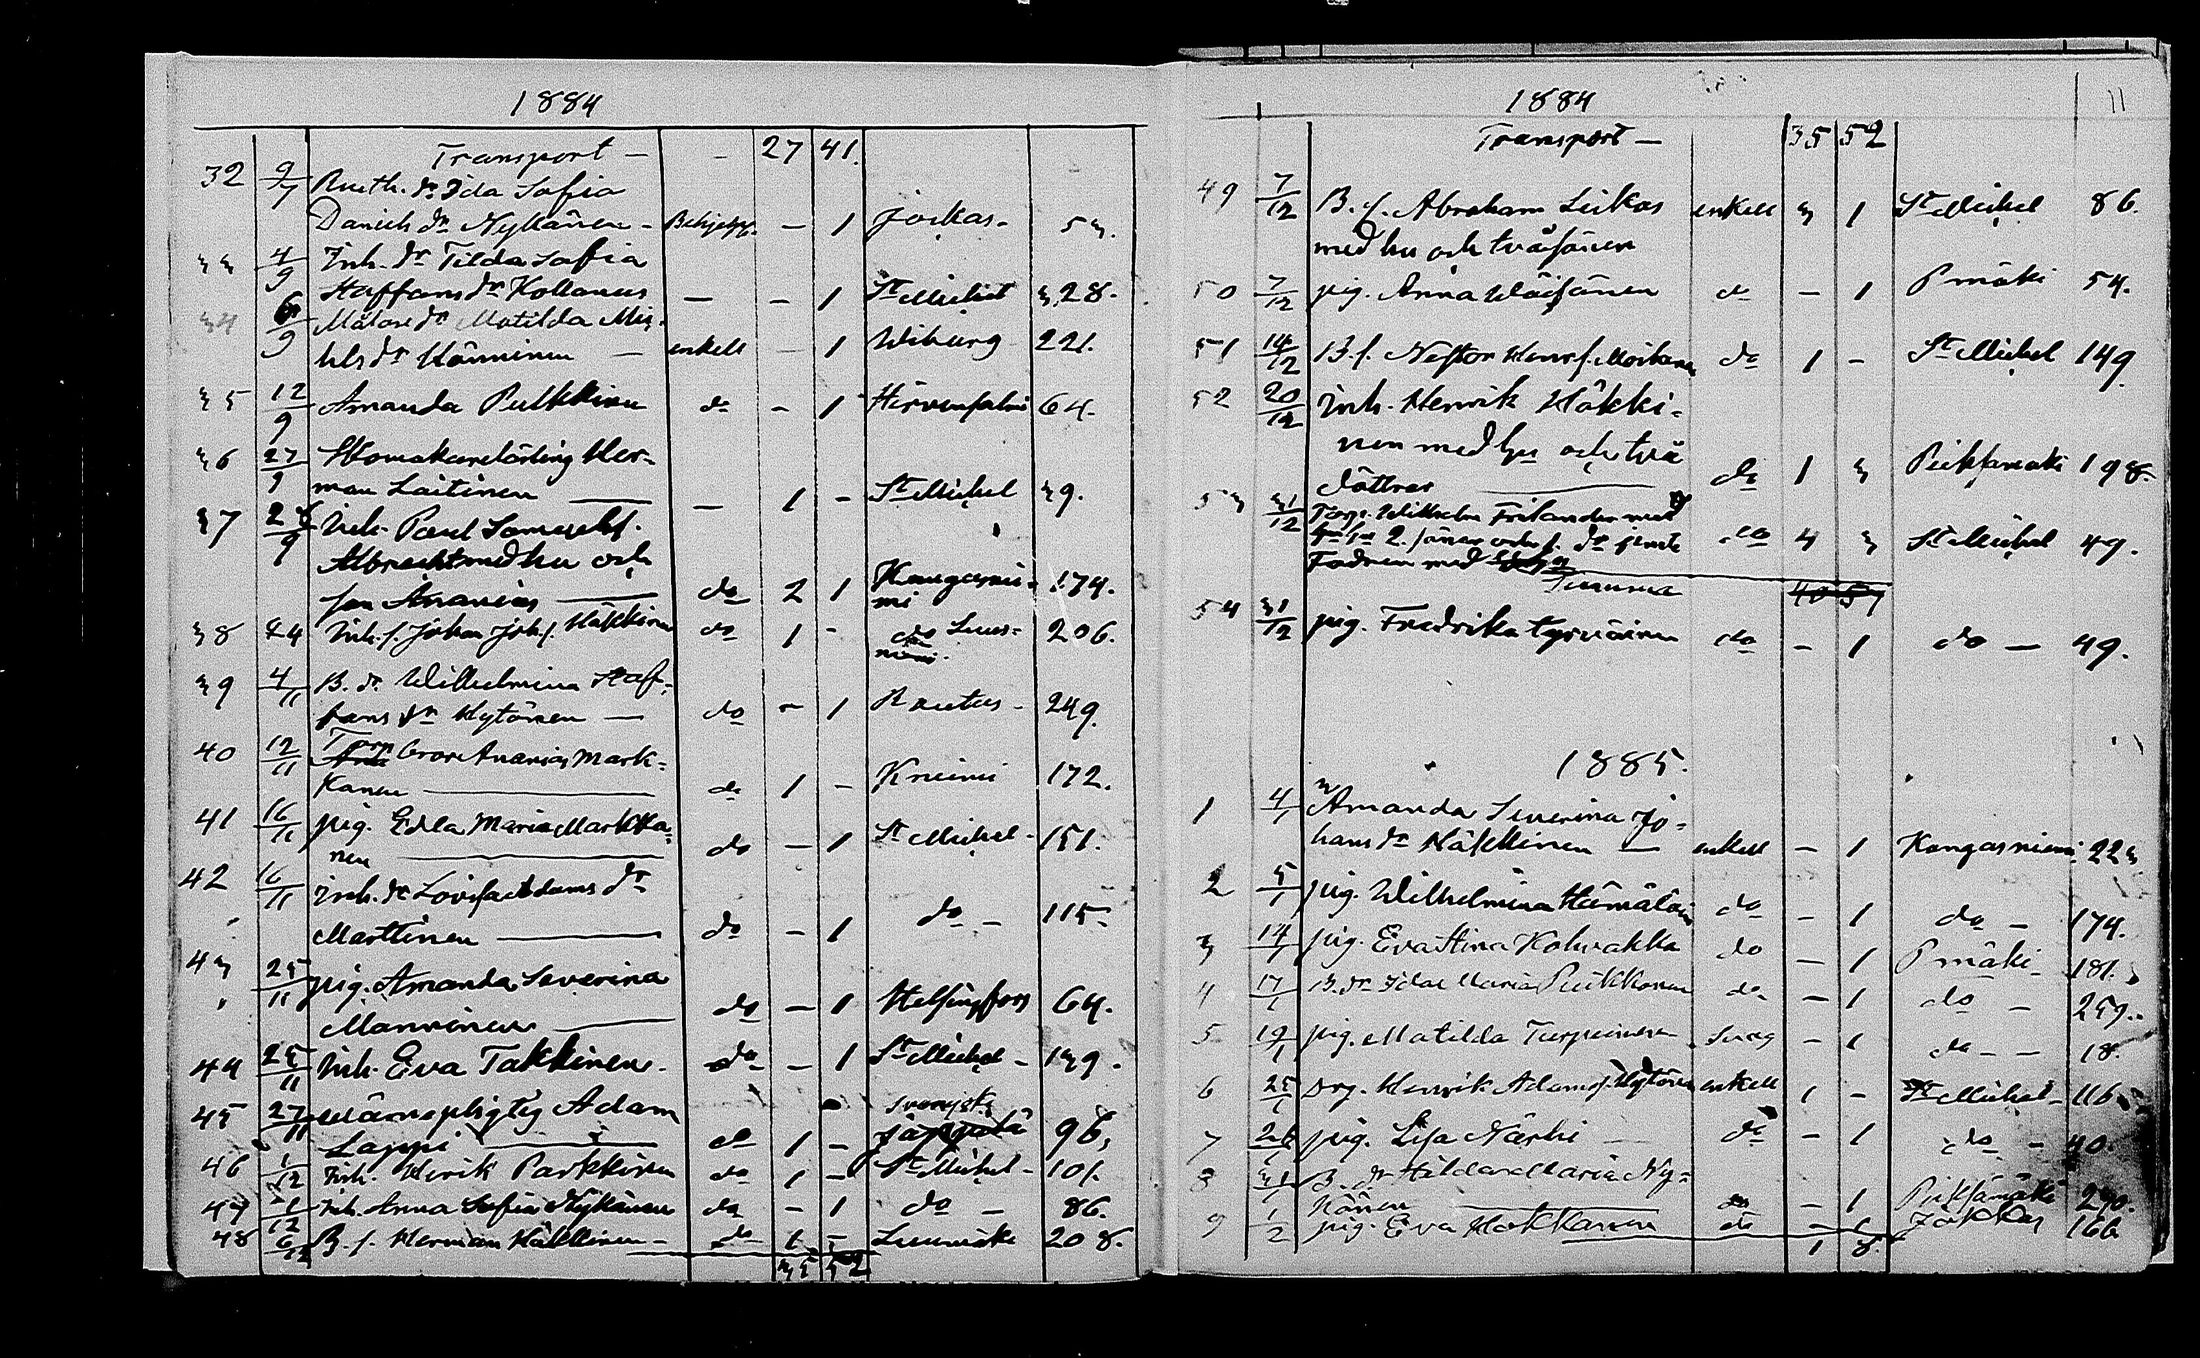 1884
Transport — - 27 41.
32 9/7 Bruth. dr Ida Sofia
Daniels dr Nykänen - Behjelpl. — 1 Jockas - 53.
33 4/9 Inh. dr Tilda Sofia
Staffans dr Kollanus — - 1 St Michel 328.
34 6/9 Målare dr Matilda Mic-
hls dr Hänninen — enkelt — 1 Wiborg 221.
35 12/9 Amanda Pulkkinen do - 1 Hirvensalmi 64.
36 27/9 Skomakarelärling Her-
man Laitinen — — 1 - St Michel 39.
37 28/9 Inh. Paul
Albrecht med hu och
son Ananias — do 2 1 Kangasnie-
mi 174.
38 Inh. s. Johan Joh.s. Häkkinen do 1 - do 206.
39 4/11 B. dr Wilhelmina Staf-
fans dr Hytönen — do - 1 Rautus - 249.
40 12/11 Torp Ananias Mark-
kanen — do 1 - Kniemi 172.
41 16/11 pig. Edla Maria Markka-
nen — do — 1 St Michel - 151.
42 16/11 Inh. dr Lovisa Adams dr
Marttinen — do — 1 do — 115.
43 25/11 pig. Amanda Severina
Manninen — do — 1 Helsingfors 64.
44 25/11 Inh. Eva Takkinen - do — 1 St Michel - 139.
45 27/11 Värnepligtig Adam
Lappi — do 1 — 96.
46 1/12 Inh. Henrik Parkkinen do 1 - St Michel - 101.
47 1/12 Inh. Anna Sofia Nykänen do - 1 do — 86.
48 6/12 B. s. Herman Häkkinen - do 1 - Luumäki 208.
35 52
11
1884
Transport — 35 52
49 7/12 B. s. Abraham Leikas enkelt 3 1 St Michel 86.
med hu och två söner
50 7/12 pig. Anna Wäisänen do — 1 Pmäki 54.
51 14/12 B. s. Nestor Henr.s. do 1 - St Michel 149.
52 20/12 Inh. Henrik Häkki-
nen med hu och två
döttrar — do 1 3 Pieksämäki 198.
53 31/12 Torp. Wilhelm Frilander med
hu 2 söner och do 4 3 St Michel 49.
Fadren med
Summa 40 57
54 31/12 pig. Fredrika Tyrväinen do - 1 do — 49.
1885.
1 4/1 Amanda Severina Jo-
hans dr Häkkinen — enkelt — 1 Kangasniemi 223
2 5/1 pig. Wilhelmina Hämäläin do - 1 do — 174.
3 14/1 pig. Eva Stina Kolvakka do — 1 Pmäki - 181.
4 17/1 B. dr Ida Maria Puikkonen do - 1 do — 259.
5 19/1 pig. Matilda Turpeinen Svag - 1 do — 18.
6 25/1 Drg. Henrik Adams s. Hytönen enkelt 1 - St Michel - 116.
7 26/1 pig. Lisa Närhi — do - 1 do - 40.
8 31/1 B. dr Hilda Maria Ny-
känen — do - 1 Pieksämäki 290.
9 1/2 pig. Eva Hokkanen do - 1 Jokkas 166
1 8.